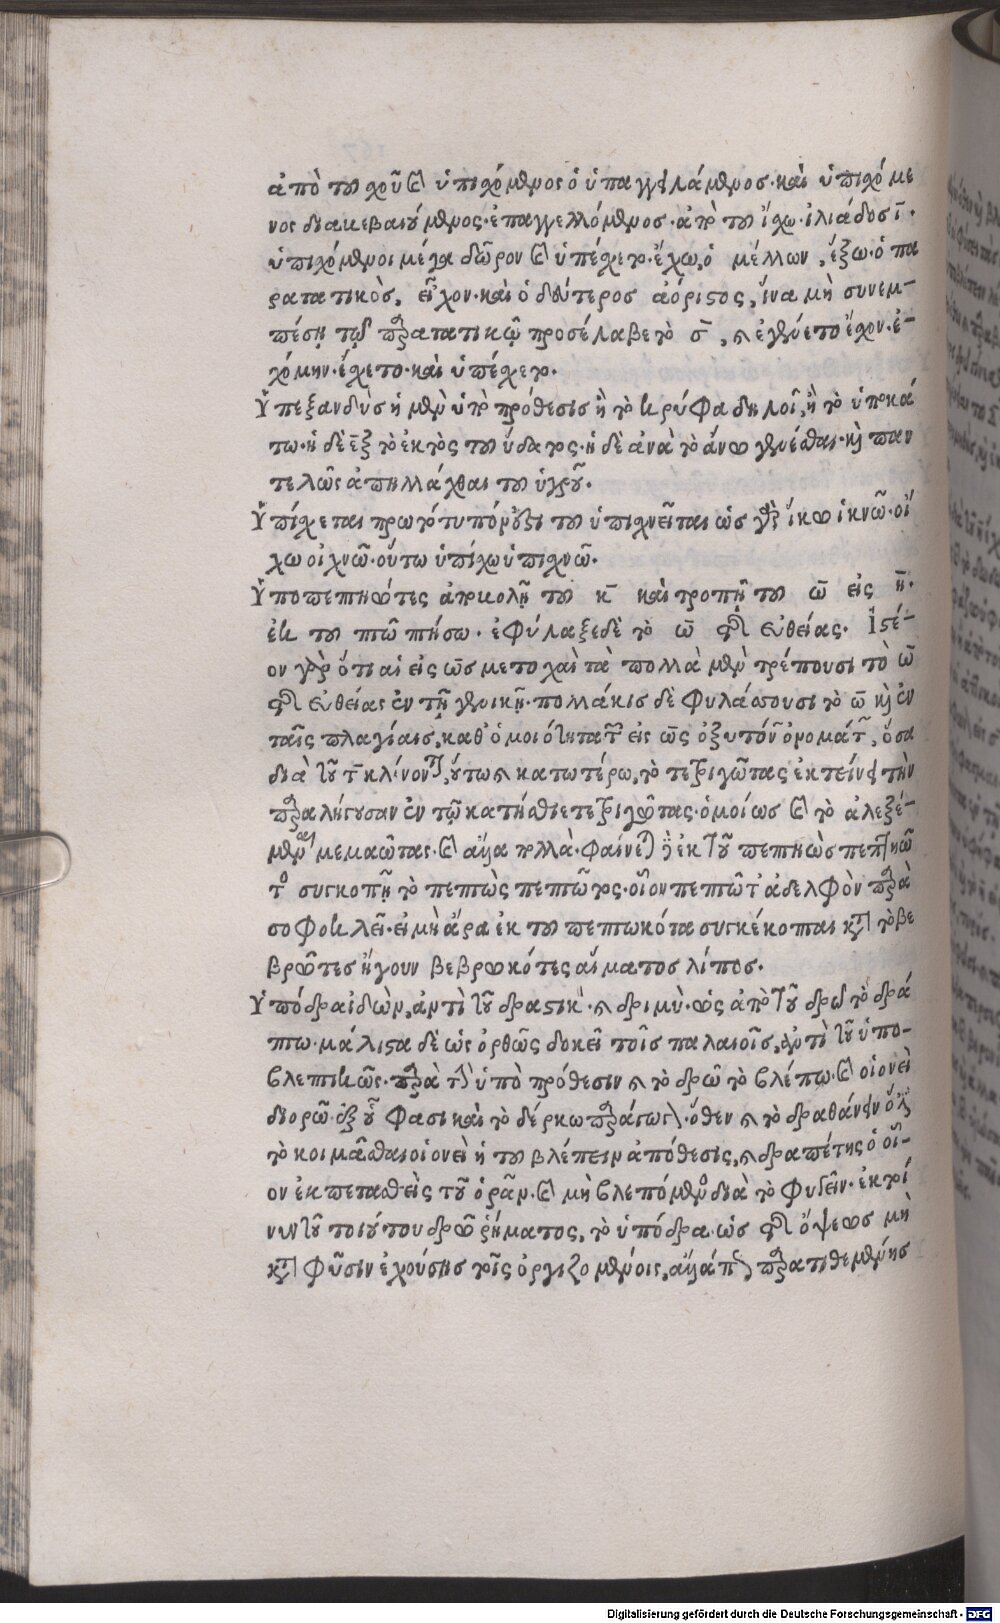 ἀπὸ τοῦ χοῦ καὶ ὑπισχόμενος ὁ ὑπαγγειλάμενος. καὶ ὑπισχόμε
νος διακεβαιούμενος. ἐπαγγελλόμενος. ἀπὸ τοῦ ἴσχω. ἰλιάδος ῑ.
ὑπισχόμενοι μέγα δῶρον καὶ ὑπέσχετο. ἔχω, ὁ μέλλων, ἕξω. ὁ πα
ρατατικὸς, εἶχον. καὶ ὁ δεύτερος ἀόριστος, ἵνα μὴ συνεμ-
πέσῃ τῷ παρατατικῷ προσέλαβε τὸ σ̄, καὶ ἐγένετο ἔσχον. ἐ-
σχόμην. ἔσχετο. καὶ ὑπέσχετο.
Ὑπεξανδὺσ ἡ μὲν ὑπὸ πρόθεσις ἢ τὸ κρύφα δηλοῖ, ἢ τὸ ὑποκά
τω. ἡ δὲ ἐξ τὸ ἐκτὸς τοῦ ὕδατος. ἡ δὲ ἀνὰ τὸ ἄνω γενέσθαι. καὶ παν
τελῶς ἀπηλλάχθαι τοῦ ὑγροῦ.
Ὑπίσχεται πρωτότυπόν ἐστι τοῦ ὑπισχνεῖται ὡς γὰρ ἵκω ἱκνῶ. οἴ
χω οἰχνῶ. οὕτω ὑπίσχω ὑπισχνῶ.
Ὑποπεπτηῶτες ἀποκοπῇ τοῦ κ̄ καὶ τροπῇ τοῦ ω̄ εἰς η̄.
ἐκ τοῦ πτῶ πτήσω. ἐφύλαξε δὲ τὸ ω̄ τῆς εὐθείας. Ἰστέ-
ον γὰρ ὅτι αἱ εἰς ω̄ς μετοχαὶ τὰ πολλὰ μὲν τρέπουσι τὸ ω̄
τῆς εὐθείας ἐν τῇ γενικῇ. πολλάκις δὲ φυλάττουσι τὸ ω̄ καὶ ἐν
ταῖς πλαγίαις, καθ' ὁμοιότητα τῶν εἰς ω̄ς ὀξυτόνων ὀνομάτων, ὅσα
διὰ τοῦ τ̄ κλίνονται, οὕτως καὶ κατωτέρω, τὸ τετριγῶτας ἐκτείνει τὴν
παραλήγουσαν ἐν τῷ κατήσθιε τετριγῶτας. ὁμοίως καὶ τὸ ἀλεξέ-
μεναι μεμαῶτας. καὶ ἄλλα πολλά. φαίνεται δὲ ἐκ τοῦ πεπτηὼς πεπτηῶ
τος συγκοπῇ τὸ πεπτὼς πεπτῶτος. οἷον πεπτῶτ' ἀδελφὸν παρὰ
σοφοκλεῖ. εἰ μὴ ἄρα ἐκ τοῦ πεπτωκότα συγκέκοπται κατὰ τὸ βε
βρῶτες ἤγουν βεβρωκότες αἵματος λίπος.
Ὑπόδρα ἰδών, ἀντὶ τοῦ δραστικῶς. καὶ δριμύ. ὡς ἀπὸ τοῦ δρῶ τὸ δρά
πτω. μάλιστα δὲ ὡς ὀρθῶς δοκεῖ τοῖς παλαιοῖς, ἀντὶ τοῦ ὑπο-
βλεπτικῶς. παρὰ τὴν ὑπὸ πρόθεσιν καὶ τὸ δρῶ τὸ βλέπω. καὶ οἱονεὶ
διορῶ. ἐξ οὗ φασι καὶ τὸ δέρκω παρῆκται. ὅθεν καὶ τὸ δραθάνειν ὅ ἐστι
τὸ κοιμᾶσθαι οἱονεὶ ἡ τοῦ βλέπειν ἀπόθεσις, καὶ δραπέτης ὁ οἷ-
ον ἐκπετασθεὶς τοῦ ὁρᾶν. καὶ μὴ βλεπόμενος διὰ τὸ φυγεῖν. ἐκ τοί
νυν τοῦ τοιούτου δρῶ ῥήματος, τὸ ὑπόδρα. ὡς τῆς ὄψεως μὴ
κατὰ φύσιν ἐχούσης τοῖς ὀργιζομένοις, ἀλλά πως παρατιθεμένης
Digitalisierung gefördert durch die Deutsche Forschungsgemeinschaft - DFG